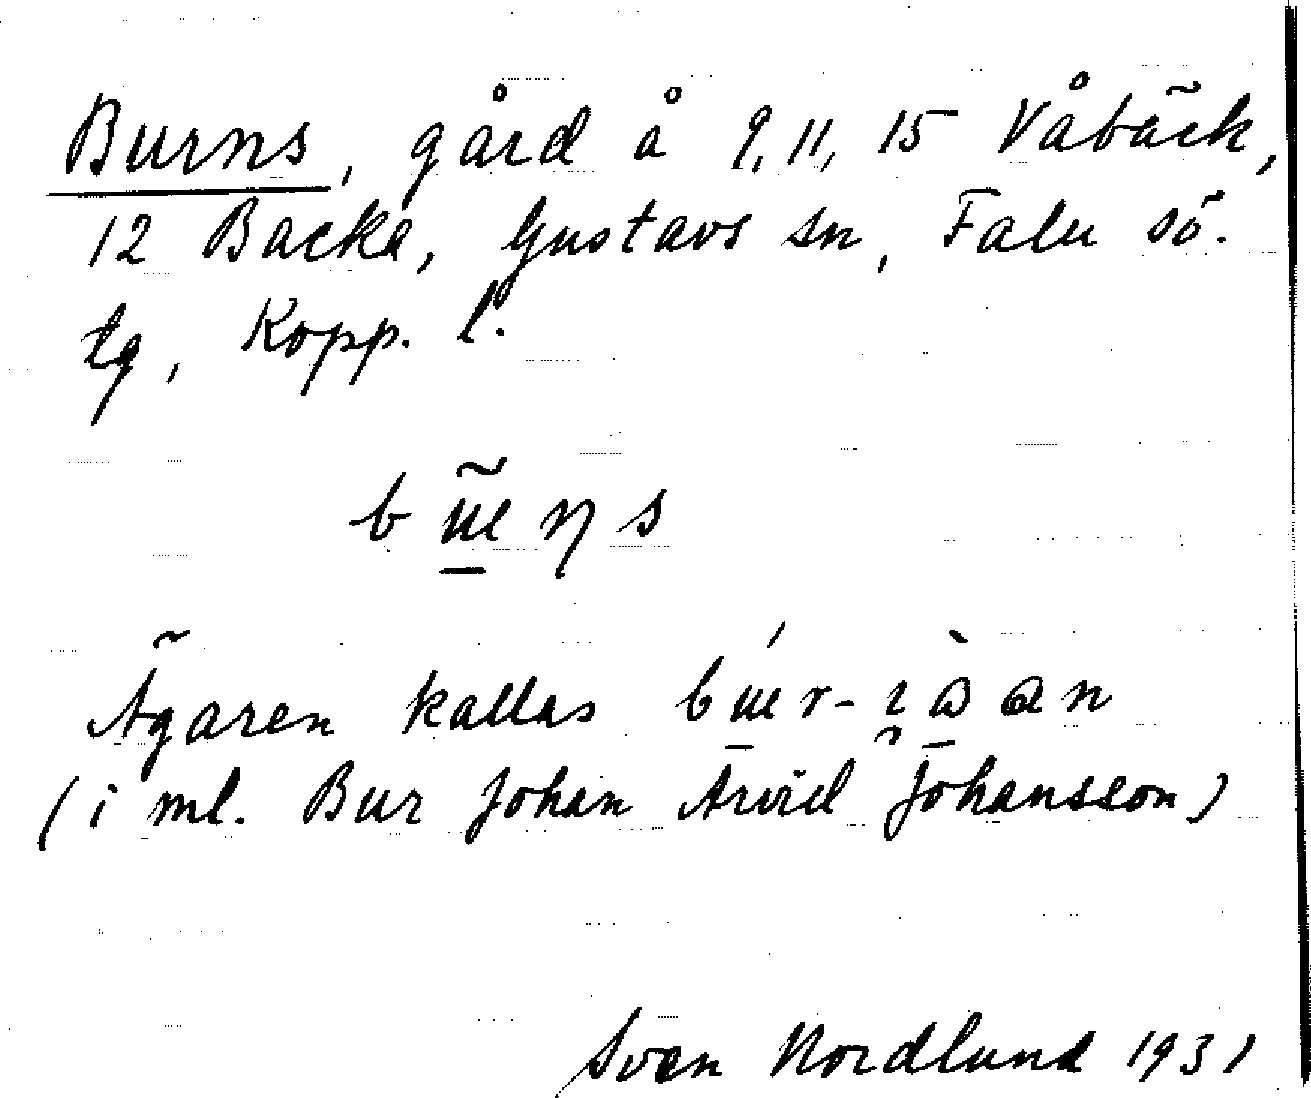 Burns, gård å 9, 11, 15 Våbäck,
12 Backa, Gustavs sn, Falu sö.
tg, Kopp. l.
Ägaren kallas
(i ml. Bur Johan Arvid Johansson)
Sven Nordlund 1931